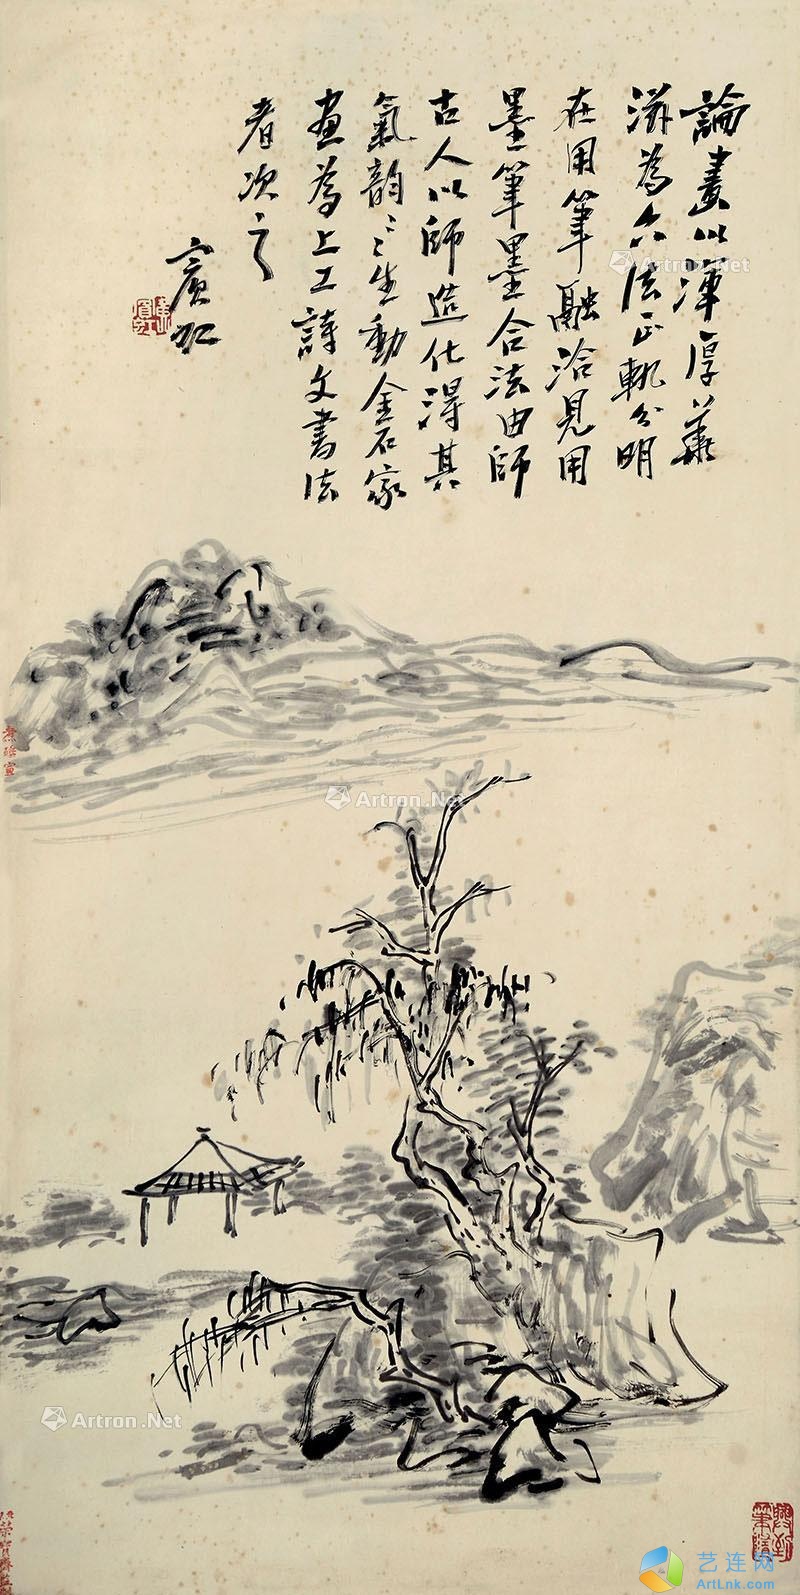 論畫以渾厚華
滋為六法正軌分明
在用筆融洽見用
墨筆墨合法由師
古人以師造化得其
氣韵氣韵生動金石家
畫為上工詩文書法
者次之
賓虹
Artron.Net
Artron.Net
Artron.Net
艺连网
ArtLnk.com